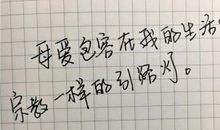 母爱包容在我的生活
宗教一样的引路灯。